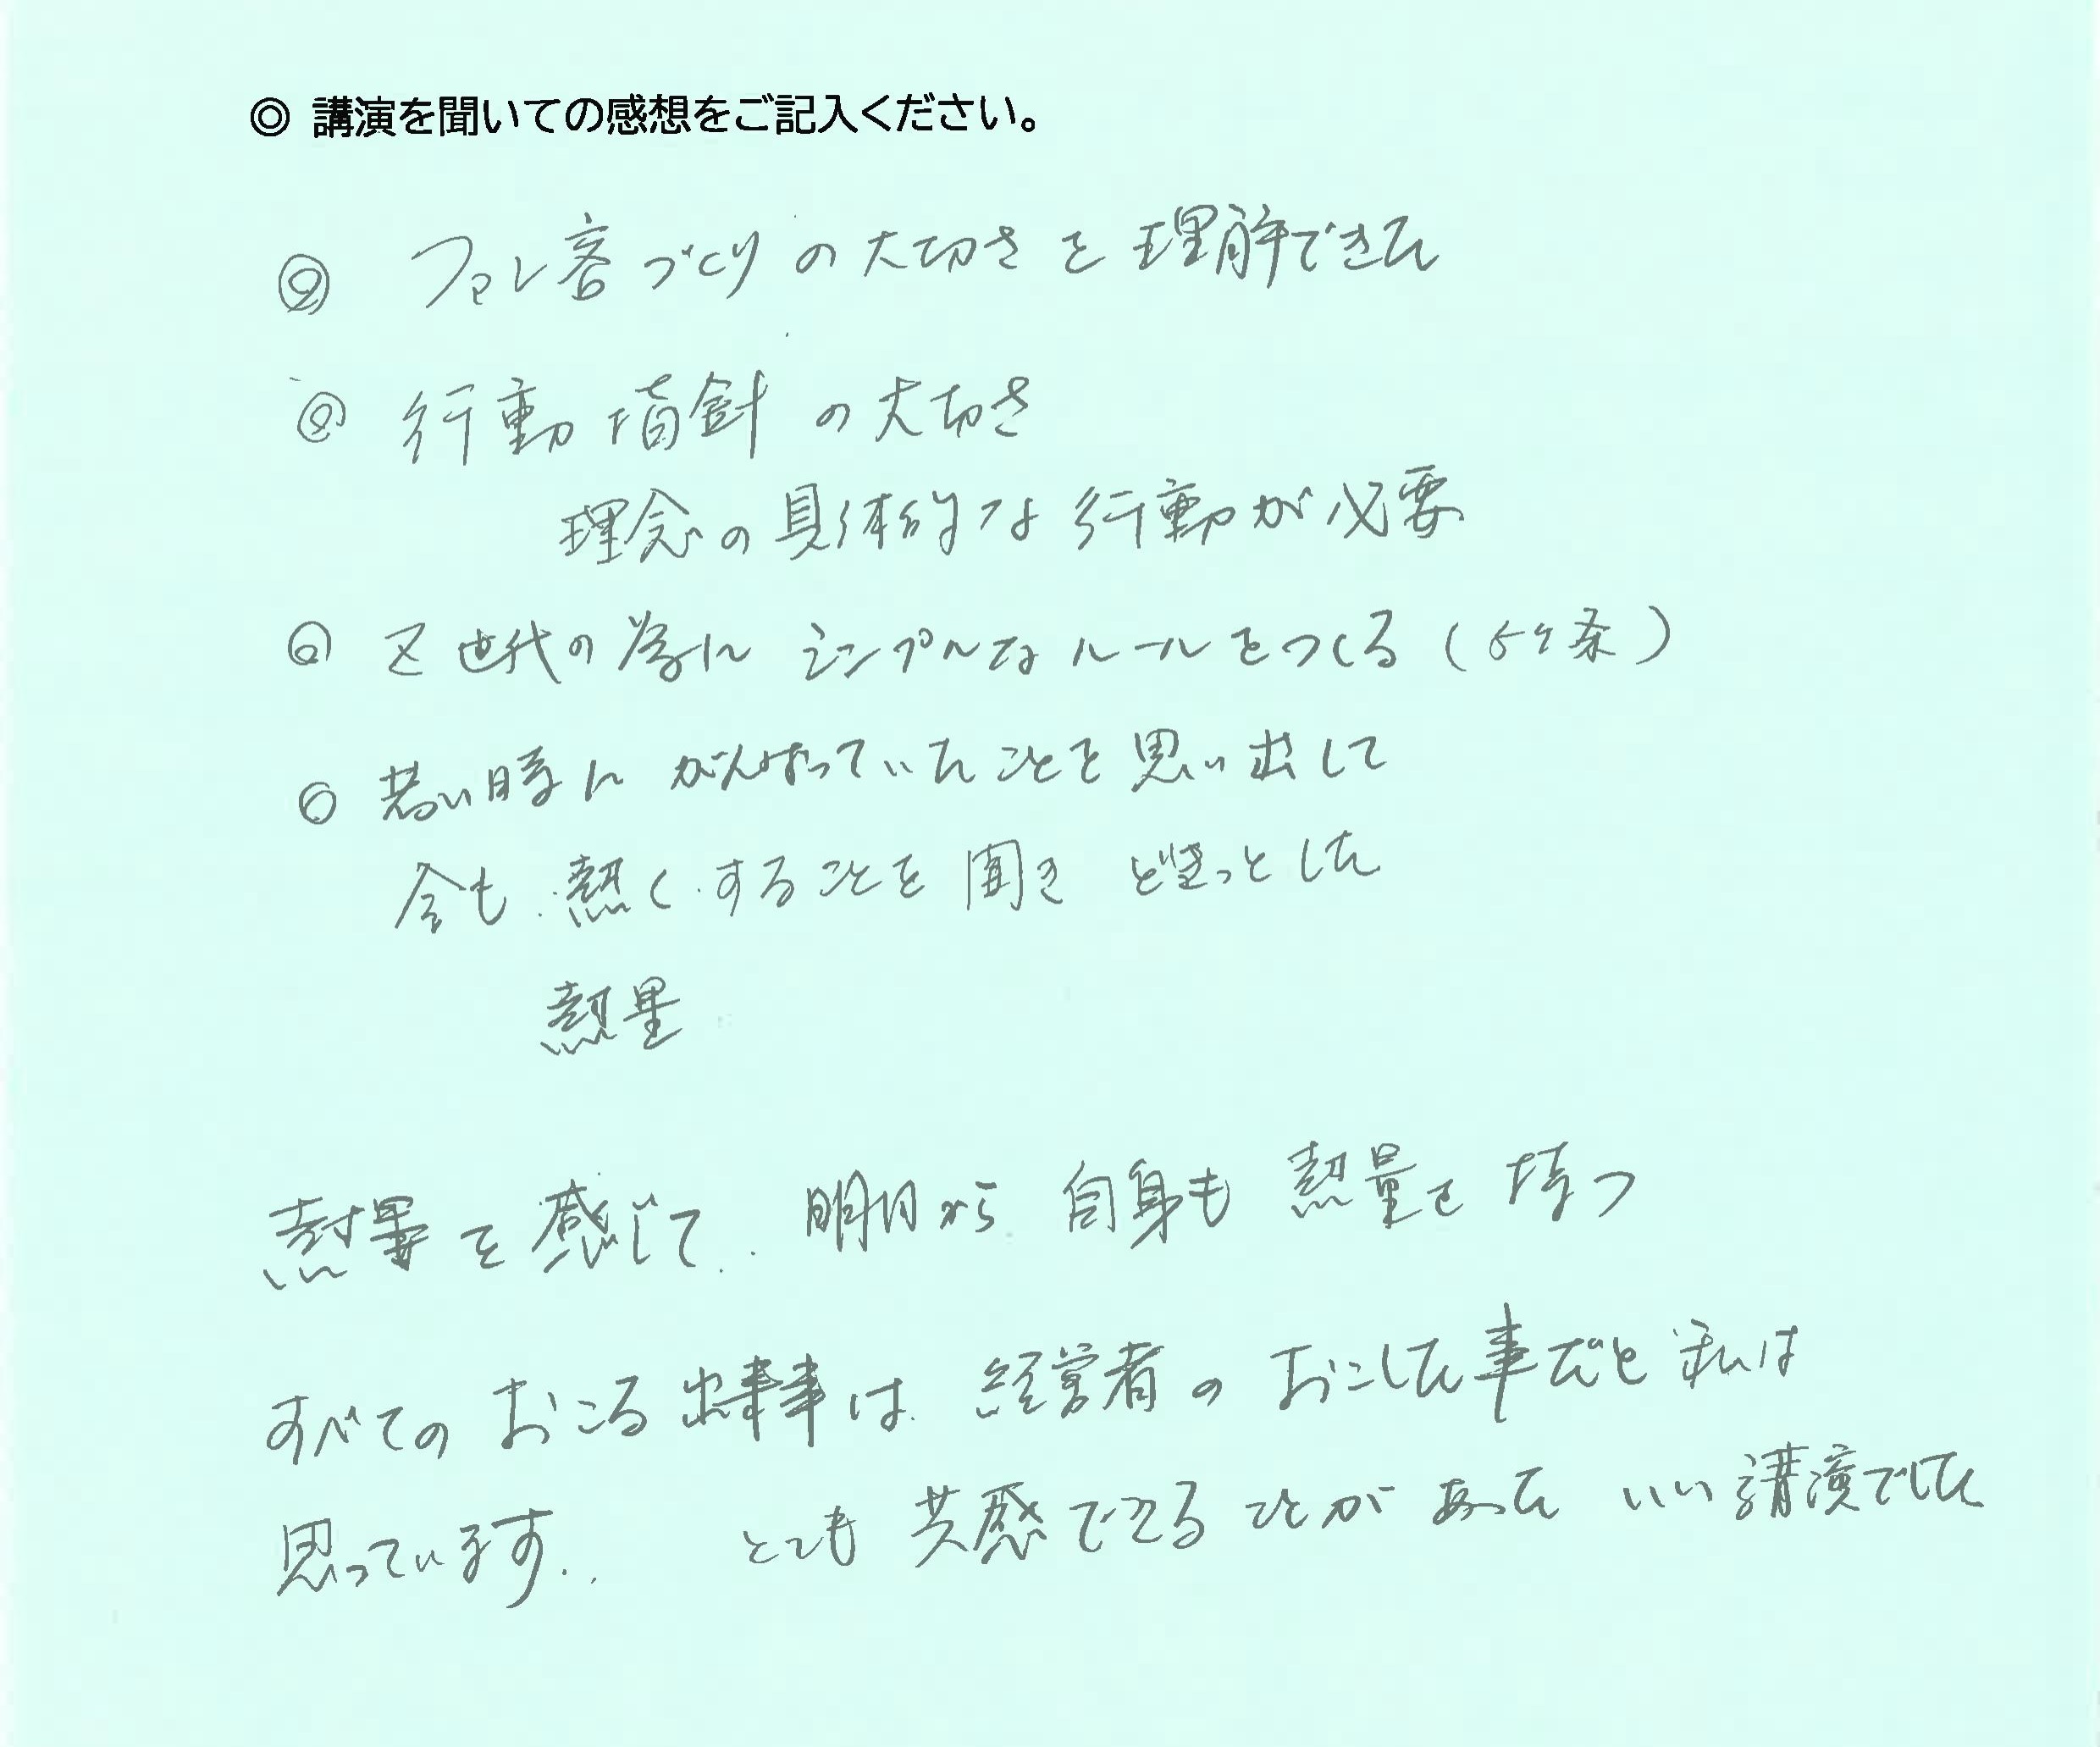 ◎ 講演を聞いての感想をご記入ください。
◎ ファン客づくりの大切さを理解できた
◎ 行動指針の大切さ
理念の具体的な行動が必要
◎ Z世代の為にシンプルなルールをつくる(5ヶ条)
◎ 若い時にがんばっていたことを思い出して
今も熱くすることを聞きどきっとした
熱量
熱量を感じて、明日から自身も熱量を持つ
すべてのおこる出来事は、経営者のおこした事だと私は
思っています。 とても共感できることがあったいい講演でした